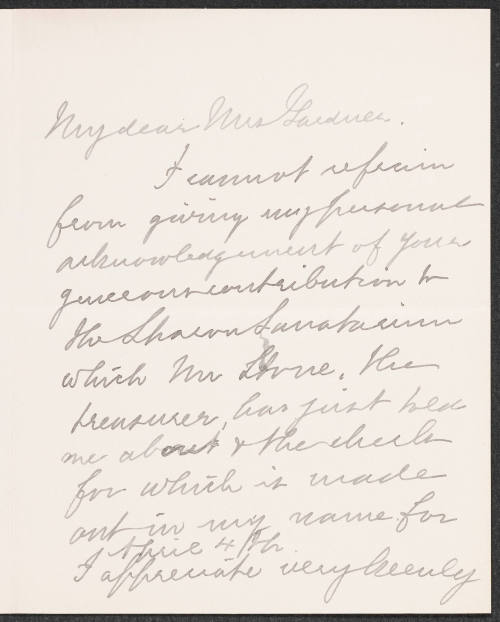 My dear Mrs Gardner.
I cannot refrain
from giving my personal
acknowledgement of your
generous contribution to
the Sharon Sanatarium
which Mr Stone, the
treasurer, has just told
me about & the check
for which is made
out in my name for
April 4th.
I appreciate very keenly